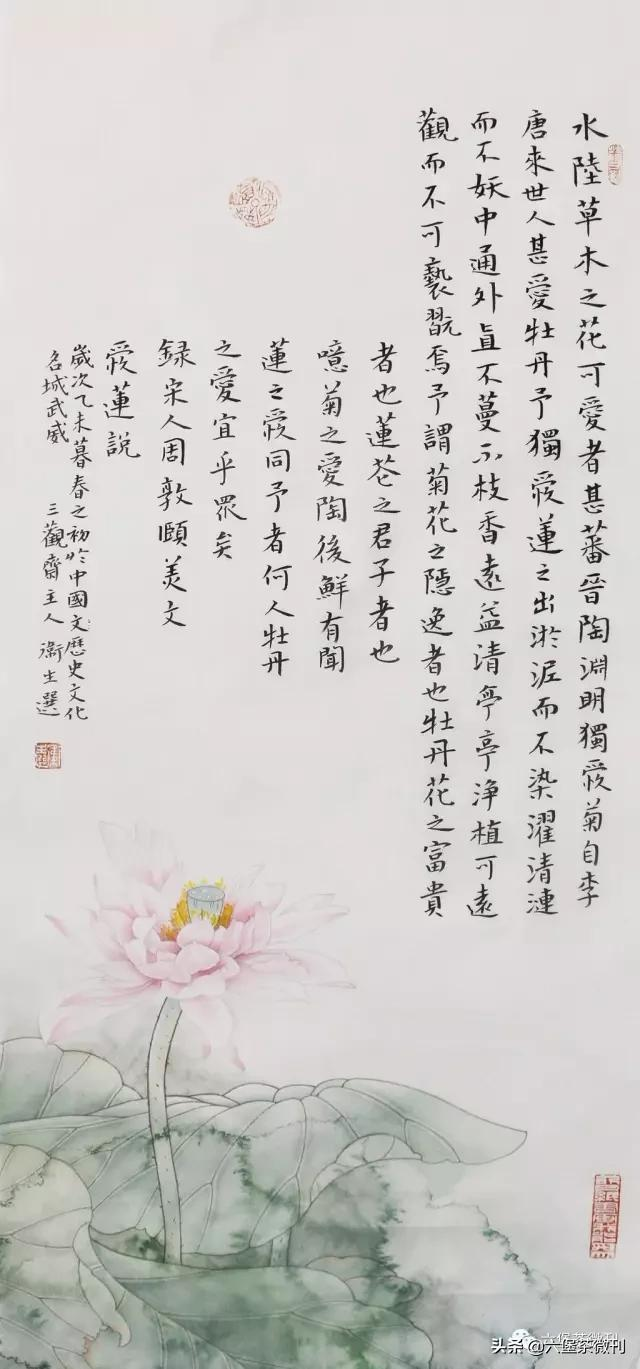 水陸草木之花可愛者甚蕃晉陶淵明獨愛菊自李
唐來世人甚愛牡丹予獨愛蓮之出淤泥而不染濯清漣
而不妖中通外直不蔓不枝香遠益清亭亭淨植可遠
觀而不可褻翫焉予謂菊花之隱逸者也牡丹花之富貴
者也蓮花之君子者也
噫菊之愛陶後鮮有聞
蓮之愛同予者何人牡丹
之愛宜乎眾矣
録宋人周敦頤美文
愛蓮説
歲次乙未暮春之初於中國文歷史文化
名城武威 三觀齋主人 衛生選
六堡茶微刊
头条 @六堡茶微刊